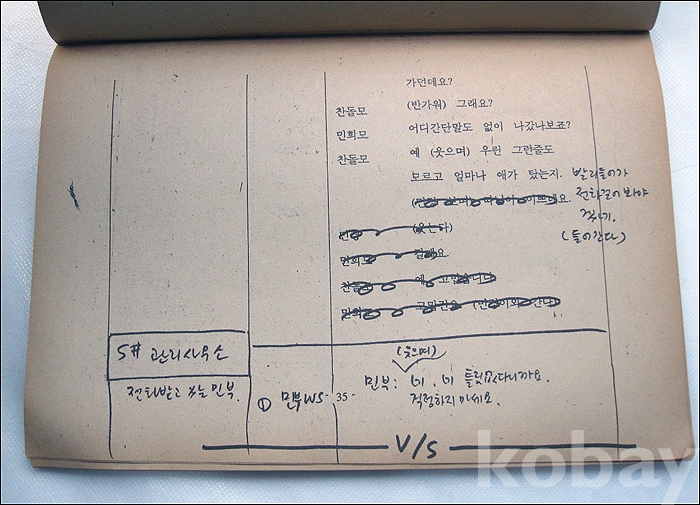 가던데요?
찬돌모 (반가워) 그래요?
민희모 어디간단말도 없이 나갔나보죠?
찬돌모 예 (웃으며) 우린 그런줄도
모르고 얼마나 애가 탔는지.
빨리들어가
전화걸어봐야
죠.
(들어간다)
S# 관리사무소
전화받고 있는 민부.
① 민부 WS
- 35 -
(웃으며)
민부: 네, 네 틀림없다니까요.
걱정하지마세요.
V/S
kobay